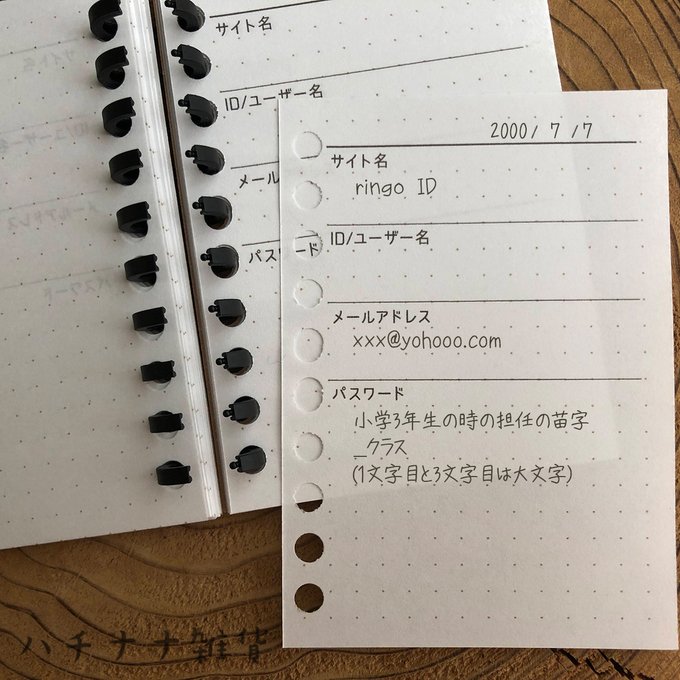 サイト名
ID/ユーザー名
メール
パスワード
2000/ 7 /7
サイト名
ringo ID
ID/ユーザー名
メールアドレス
xxx@yohooo.com
パスワード
小学3年生の時の担任の苗字
_クラス
(1文字目と3文字目は大文字)
ハチナナ雑貨